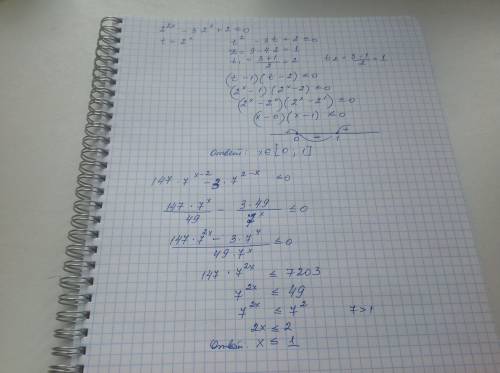 2²ˣ - 3·2ˣ + 2 ≤ 0
t = 2ˣ t² - 3t + 2 ≤ 0
D = 9 - 4·2 = 1
t₁ = (3+1)/2 = 2 t₂ = (3-1)/2 = 1
(t - 1)(t - 2) ≤ 0
(2ˣ - 1)(2ˣ - 2) ≤ 0
(2ˣ - 2⁰)(2ˣ - 2¹) ≤ 0
(x - 0)(x - 1) ≤ 0
+ - +
0 1
Ответ: x ∈ [0, 1]
147 · 7ˣ⁻² - 3 · 7²⁻ˣ ≤ 0
(147 · 7ˣ)/49 - (3 · 49)/7ˣ ≤ 0
(147 · 7²ˣ - 3 · 7⁴)/(49 · 7ˣ) ≤ 0
147 · 7²ˣ ≤ 7203
7²ˣ ≤ 49
7²ˣ ≤ 7² 7 > 1
2x ≤ 2
Ответ: x ≤ 1